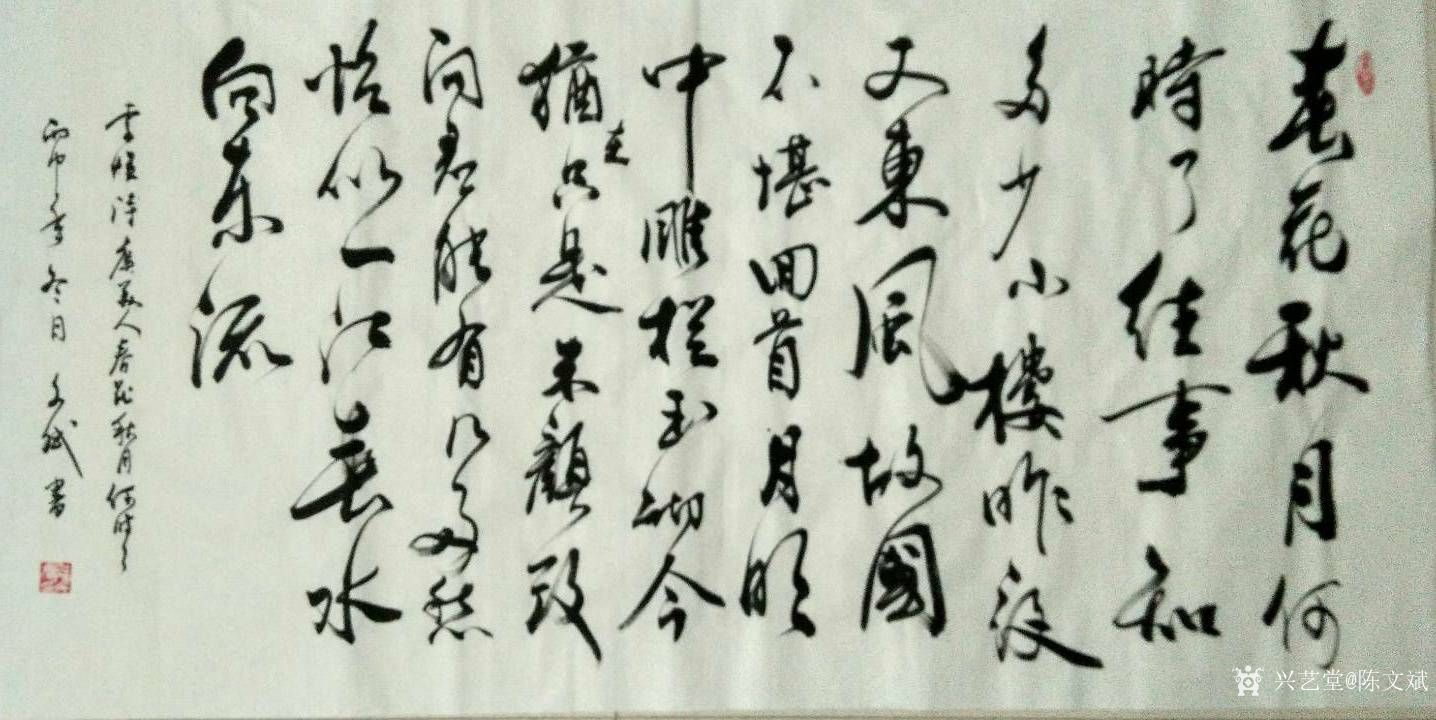 春花秋月何
時了往事知
多少小樓昨夜
又東風故國
不堪回首月明
中雕栏玉砌今
猶在只是朱顏改
问君能有几多愁
恰似一江春水
向东流
李煜诗虞美人春花秋月何时了
丙申年冬月 文斌書
兴艺堂@陈文斌